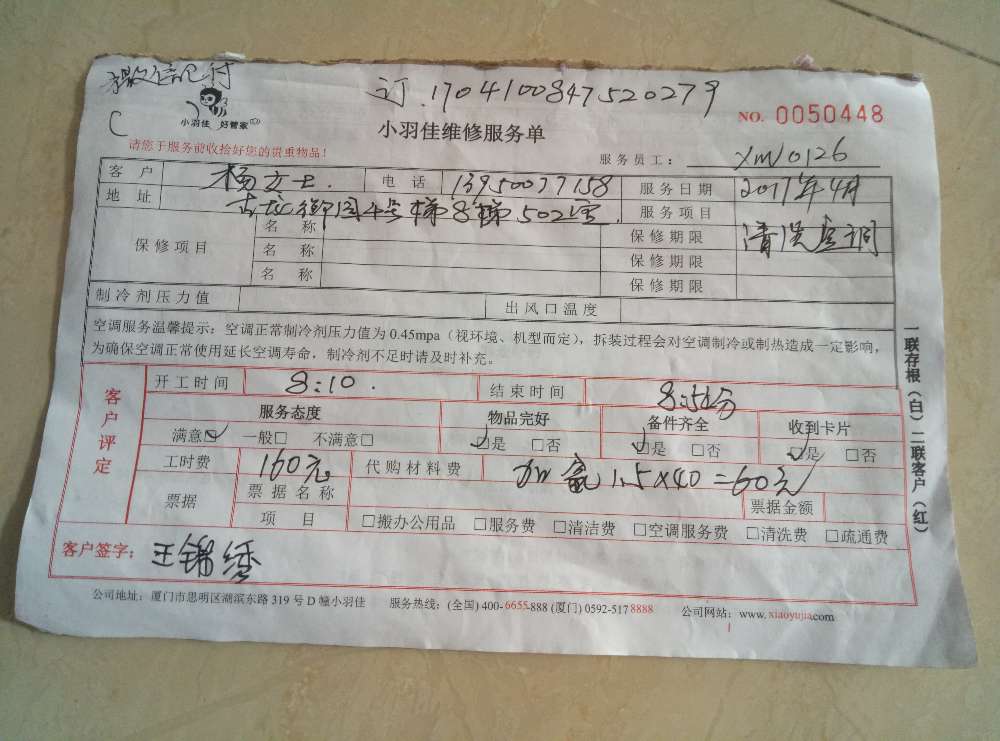 微信已付
订.1704100847520279
C
小羽佳 好管家
NO. 0050448
小羽佳维修服务单
请您于服务前收拾好您的贵重物品!
服务员工: XM0126
客 户 杨女士. 电 话 13950077158 服务日期 2017年4月
地 址 古龙御园4号梯8梯502室. 服务项目 清洗空调
保修项目 名 称 保修期限
名 称 保修期限
名 称 保修期限
制冷剂压力值 出风口温度
空调服务温馨提示:空调正常制冷剂压力值为 0.45mpa(视环境、机型而定),拆装过程会对空调制冷或制热造成一定影响,
为确保空调正常使用延长空调寿命,制冷剂不足时请及时补充。
客户评定
开工时间 8:10. 结束时间 8:5分
服务态度 物品完好 备件齐全 收到卡片
满意☑ 一般□ 不满意□ ☑是 □否 ☑是 □否 ☑是 □否
工时费 160元 代购材料费 加氟1.5×40=60元
票据 票据名称 票据金额
项 目 □搬办公用品 □服务费 □清洁费 □空调服务费 □清洗费 □疏通费
客户签字: 王锦绣
公司地址:厦门市思明区湖滨东路 319 号 D 幢小羽佳 服务热线:(全国) 400-6655-888 (厦门) 0592-517 8888 公司网站:www.xiaoyujia.com
一联存根(白)二联客户(红)